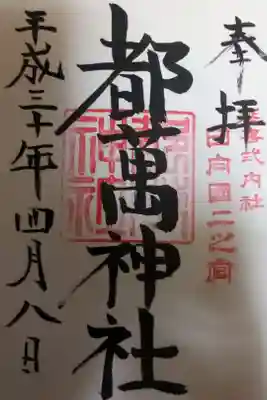 奉拝
延喜式内社
日向國二之宮
都萬神社
平成三十年四月八日